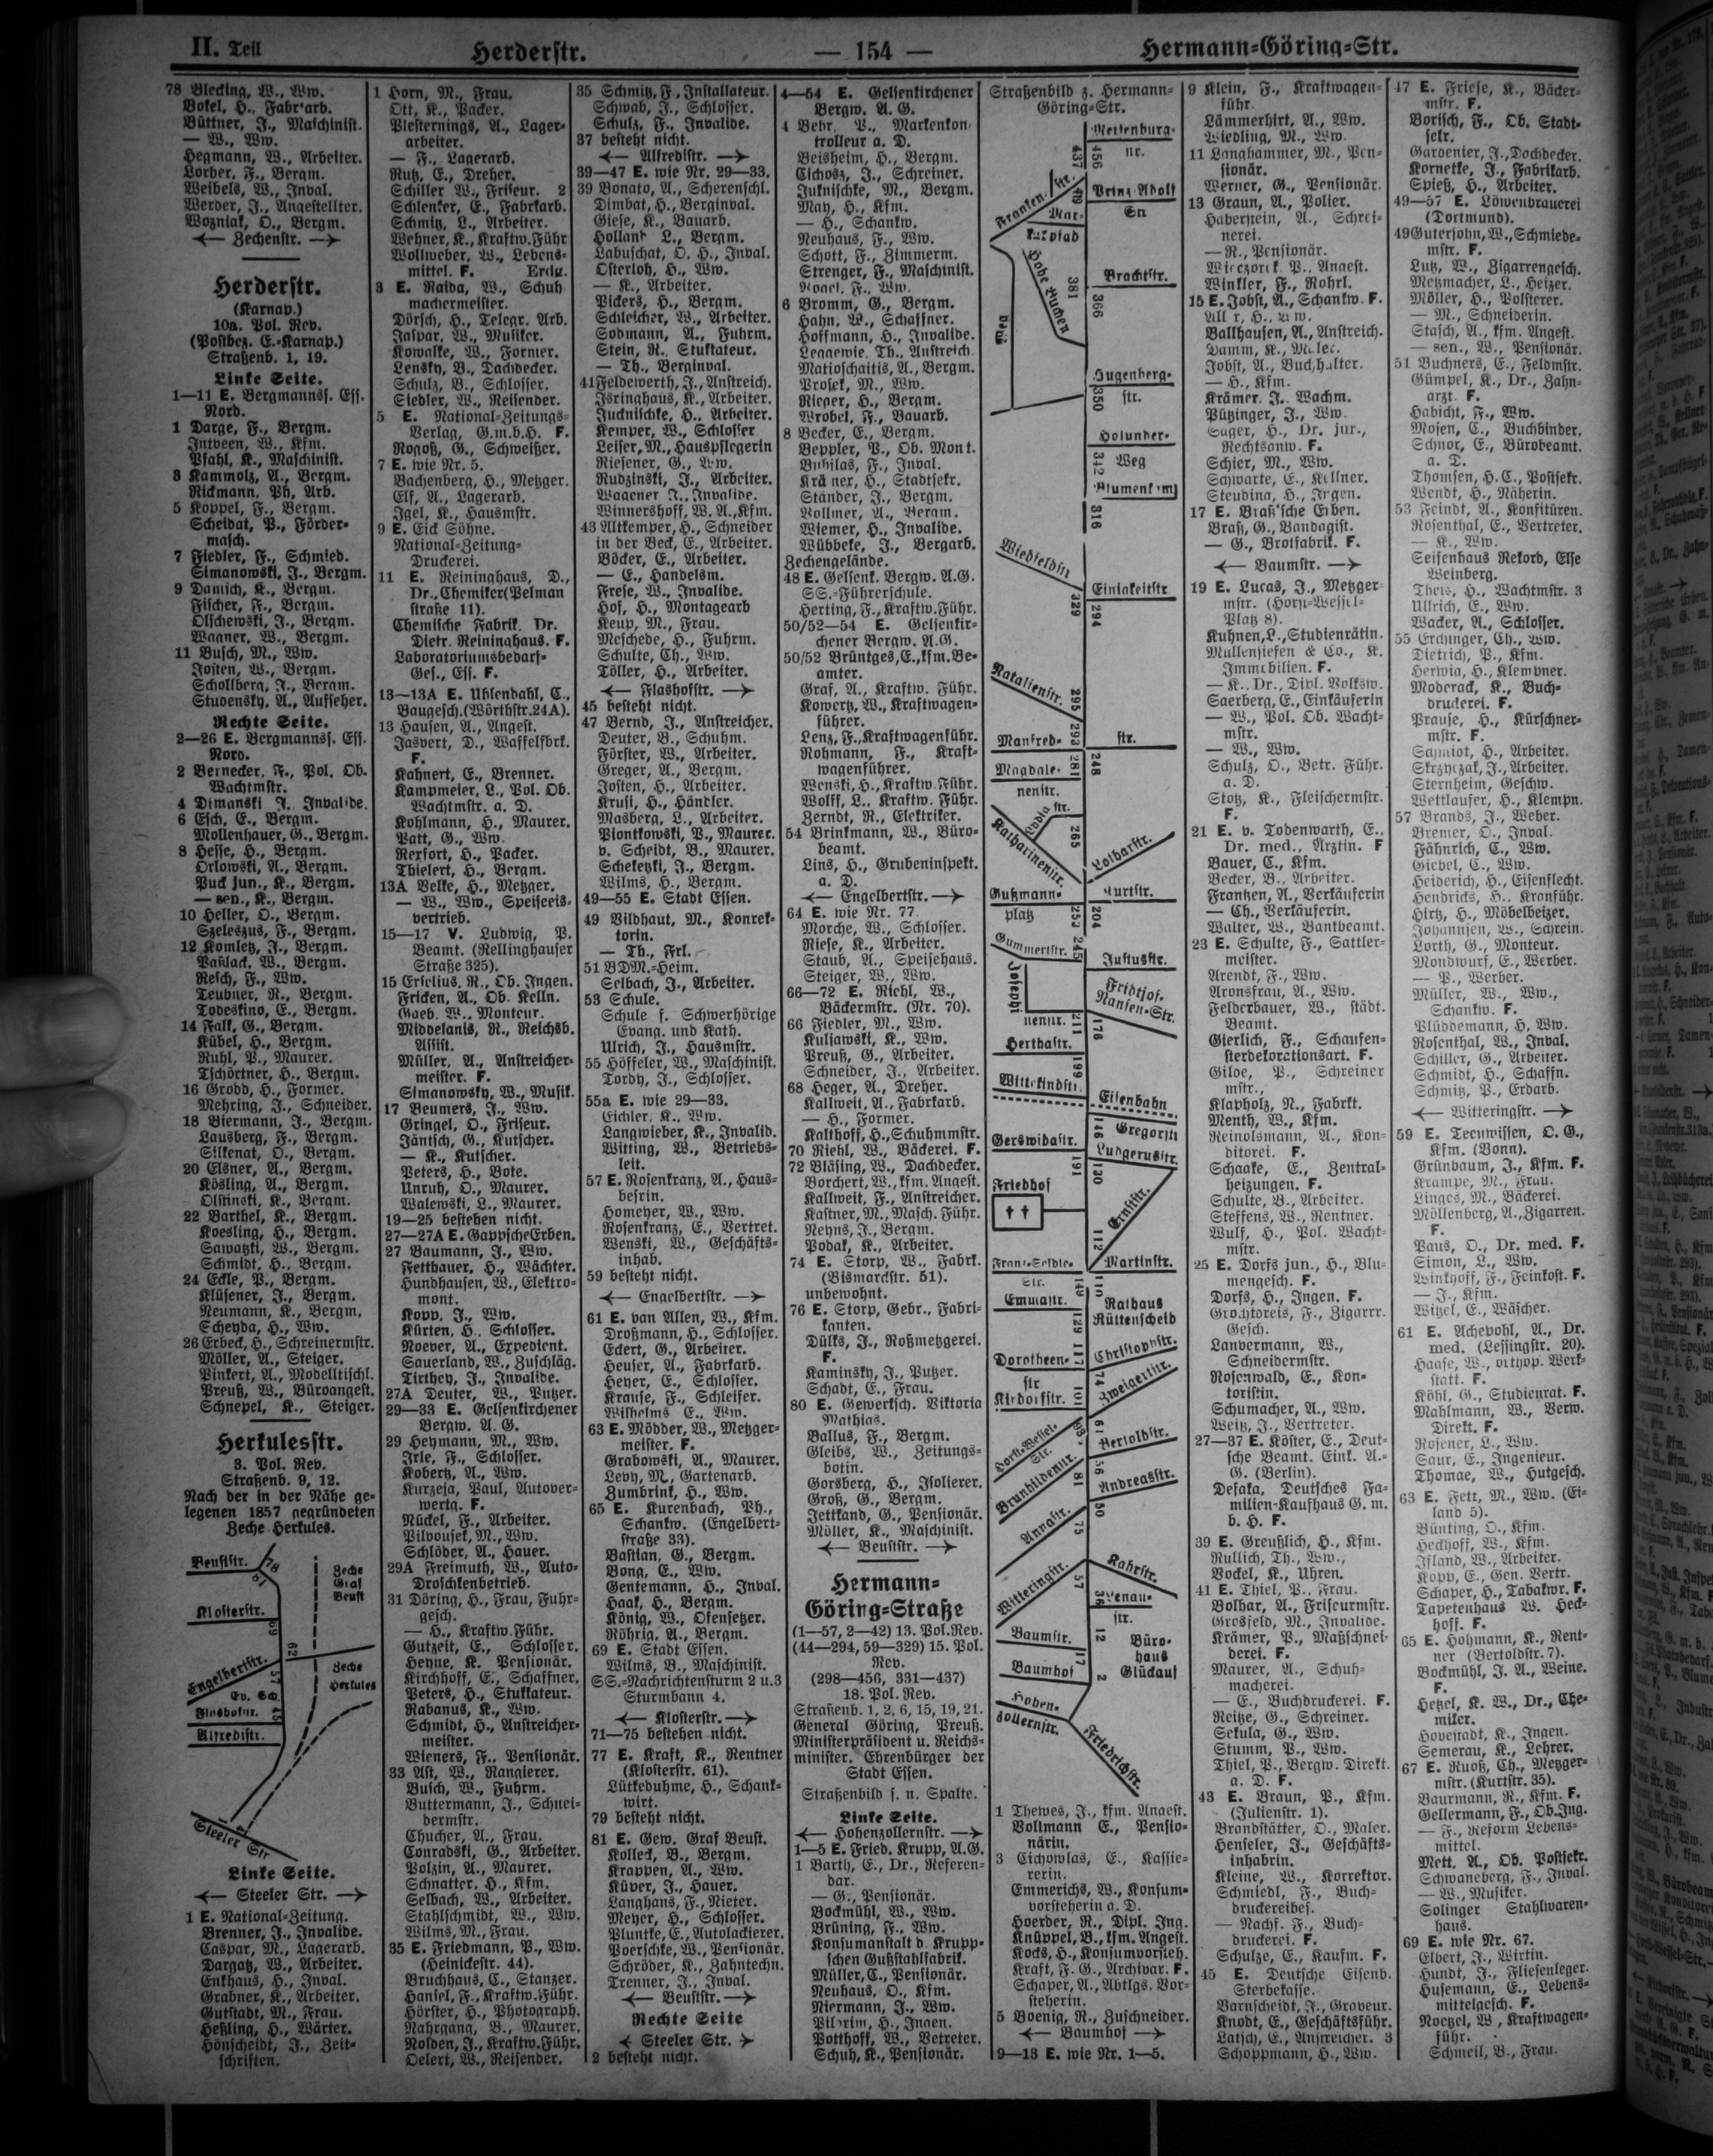 II. Teil
Herderstr.
— 154 —
Hermann-Göring-Str.
78 Blecking, W., Ww.
Bokel, H., Fabr'arb.
Büttner, J., Maschinist.
— W., Ww.
Hegmann, W., Arbeiter.
Lorber, F., Bergm.
Weibels, W., Inval.
Werder, J., Angestellter.
Wozniak, O., Bergm.
←— Zechenstr. —→
Herderstr.
(Karnap.)
10a. Pol. Rev.
(Postbez. E.-Karnap.)
Straßenb. 1, 19.
Linke Seite.
1—11 E. Bergmannss. Ess.
Nord.
1 Darge, F., Bergm.
Intveen, W., Kfm.
Pfahl, K., Maschinist.
3 Kammolz, A., Bergm.
Rickmann, Ph, Arb.
5 Koppel, F., Bergm.
Scheidat, P., Förder-
masch.
7 Fiedler, F., Schmied.
Simanowski, J., Bergm.
9 Damich, K., Bergm.
Fischer, F., Bergm.
Olschewski, J., Bergm.
Wagner, W., Bergm.
11 Busch, M., Ww.
Josten, W., Bergm.
Schollberg, J., Bergm.
Studensky, A., Aufseher.
Rechte Seite.
2—26 E. Bergmannss. Ess.
Nord.
2 Bernecker, F., Pol. Ob.
Wachtmstr.
4 Dimanski J., Invalide.
6 Esch, E., Bergm.
Mollenhauer, G., Bergm.
8 Hesse, H., Bergm.
Orlowski, A., Bergm.
Puck jun., K., Bergm.
— sen., K., Bergm.
10 Heller, O., Bergm.
Szeleszus, F., Bergm.
12 Komletz, J., Bergm.
Paßlack, W., Bergm.
Resch, F., Ww.
Teubner, R., Bergm.
Todeskino, E., Bergm.
14 Falk, G., Bergm.
Kübel, H., Bergm.
Ruhl, P., Maurer.
Tschörtner, H., Bergm.
16 Grobb, H., Former.
Mehring, J., Schneider.
18 Biermann, J., Bergm.
Lausberg, F., Bergm.
Silkenat, O., Bergm.
20 Elsner, A., Bergm.
Kösling, A., Bergm.
Olstinski, K., Bergm.
22 Barthel, K., Bergm.
Koesling, H., Bergm.
Sawatzki, W., Bergm.
Schmidt, H., Bergm.
24 Eckle, P., Bergm.
Klüsener, J., Bergm.
Neumann, K., Bergm.
Scheyda, H., Ww.
26 Erbeck, H., Schreinermstr.
Möller, A., Steiger.
Pinkert, A., Modelltischl.
Preuß, W., Büroangest.
Schnepel, K., Steiger.
Herkulesstr.
3. Pol. Rev.
Straßenb. 9, 12.
Nach der in der Nähe ge-
legenen 1857 gegründeten
Zeche Herkules.
Beuststr.
Zeche
Graf
Beust
Klosterstr.
Engelbertstr.
Zeche
Herkules
Ev. Sch.
Flashofstr.
Alfredistr.
Steeler Str
Linke Seite.
←— Steeler Str. —→
1 E. National-Zeitung.
Brenner, J., Invalide.
Caspar, M., Lagerarb.
Dargatz, W., Arbeiter.
Enkhaus, H., Inval.
Grabner, K., Arbeiter.
Gutstadt, M., Frau.
Heßling, H., Wärter.
Hönscheidt, J., Zeit-
schriften.
1 Horn, M., Frau.
Ott, K., Packer.
Piesternings, A., Lager-
arbeiter.
— F., Lagerarb.
Rutz, E., Dreher.
Schiller W., Friseur. 2
Schlenker, E., Fabrkarb.
Schmitz, L., Arbeiter.
Wehner, K., Kraftw.Führ
Wollweber, W., Lebens-
mittel. F. Erdg.
3 E. Raida, W., Schuh
machermeister.
Dörsch, H., Telegr. Arb.
Jaspar, W., Musiker.
Kowalke, W., Former.
Lensky, B., Dachdecker.
Schulz, B., Schlosser.
Siedler, W., Reisender.
5 E. National-Zeitungs-
Verlag, G.m.b.H. F.
Rogoß, G., Schweißer.
7 E. wie Nr. 5.
Bachenberg, H., Metzger.
Elf, A., Lagerarb.
Igel, K., Hausmstr.
9 E. Eick Söhne.
National-Zeitung-
Druckerei.
11 E. Reininghaus, D.,
Dr., Chemiker(Pelman
straße 11).
Chemische Fabrik. Dr.
Dietr. Reininghaus. F.
Laboratoriumsbedarf-
Ges., Ess. F.
13—13A E. Uhlendahl, C.,
Baugesch.(Wörthstr.24A).
13 Hausen, A., Angest.
Jaspert, D., Waffelfbrk.
F.
Kahnert, E., Brenner.
Kampmeier, L., Pol. Ob.
Wachtmstr. a. D.
Kohlmann, H., Maurer.
Patt, G., Ww.
Rexfort, H., Packer.
Thielert, H., Bergm.
13A Velke, H., Metzger.
— W., Ww., Speiseeis-
vertrieb.
15—17 V. Ludwig, P.
Beamt. (Rellinghauser
Straße 325).
15 Ericlius, R., Ob. Ingen.
Fricken, A., Ob. Kelln.
Gaeb, W., Monteur.
Middelanis, R., Reichsb.
Assist.
Müller, A., Anstreicher-
meister. F.
Simanowsky, W., Musik.
17 Beumers, J., Ww.
Gringel, O., Friseur.
Jäntsch, G., Kutscher.
— K., Kutscher.
Peters, H., Bote.
Unruh, O., Maurer.
Walewski, L., Maurer.
19—25 bestehen nicht.
27—27A E. GappscheErben.
27 Baumann, J., Ww.
Fettbauer, H., Wächter.
Hundhausen, W., Elektro-
mont.
Kopp, J., Ww.
Kürten, H., Schlosser.
Noever, A., Expedient.
Sauerland, W., Zuschläg.
Tirthey, J., Invalide.
27A Deuter, W., Putzer.
29—33 E. Gelsenkirchener
Bergw. A. G.
29 Heymann, M., Ww.
Irle, F., Schlosser.
Kobertz, A., Ww.
Kurzeja, Paul, Autover-
wertg. F.
Nückel, F., Arbeiter.
Pilvousek, M., Ww.
Schlöder, A., Hauer.
29A Freimuth, W., Auto-
Droschkenbetrieb.
31 Döring, H., Frau, Fuhr-
gesch.
— H., Kraftw.Führ.
Gutzeit, E., Schlosser.
Heyne, K. Pensionär.
Kirchhoff, E., Schaffner.
Peters, H., Stukkateur.
Rabanus, K., Ww.
Schmidt, H., Anstreicher-
meister.
Wieners, F., Pensionär.
33 Ast, W., Rangierer.
Busch, W., Fuhrm.
Buttermann, J., Schnei-
dermstr.
Chucher, A., Frau.
Conradski, G., Arbeiter.
Polzin, A., Maurer.
Schnatter, H., Kfm.
Selbach, W., Arbeiter.
Stahlschmidt, W., Ww.
Wilms, M., Frau.
35 E. Friedmann, P., Ww.
(Heinickestr. 44).
Bruchhaus, C., Stanzer.
Hansel, F., Kraftw.Führ.
Hörster, H., Photograph.
Nahrgang, B., Maurer.
Nolden, J., Kraftw.Führ.
Oelert, W., Reisender.
35 Schmitz, F., Installateur.
Schwab, J., Schlosser.
Schulz, F., Invalide.
37 besteht nicht.
←— Alfredistr. —→
39—47 E. wie Nr. 29—33.
39 Bonato, A., Scherenschl.
Dimbat, H., Berginval.
Giese, K., Bauarb.
Holland L., Bergm.
Labuschat, O. H., Inval.
Osterloh, H., Ww.
— K., Arbeiter.
Pickers, H., Bergm.
Schleicher, W., Arbeiter.
Sodmann, A., Fuhrm.
Stein, R., Stukkateur.
— Th., Berginval.
41 Feldewerth, J., Anstreich.
Isringhaus, K., Arbeiter.
Jucknischke, H., Arbeiter.
Kemper, W., Schlosser
Leiser, M., Hauspflegerin
Riesener, G., Ww.
Rudzinski, J., Arbeiter.
Wagener J., Invalide.
Winnershoff, W. A., Kfm.
43 Altkemper, H., Schneider
in der Beck, E., Arbeiter.
Böcker, E., Arbeiter.
— E., Handelsm.
Frese, W., Invalide.
Hof, H., Montagearb
Keup, M., Frau.
Meschede, H., Fuhrm.
Schulte, Ch., Ww.
Töller, H., Arbeiter.
←— Flashofstr. —→
45 besteht nicht.
47 Bernd, J., Anstreicher.
Deuter, B., Schuhm.
Förster, W., Arbeiter.
Greger, A., Bergm.
Josten, H., Arbeiter.
Krusi, H., Händler.
Masberg, L., Arbeiter.
Piontkowski, P., Maurer.
v. Scheidt, B., Maurer.
Scheketzki, J., Bergm.
Wilms, H., Bergm.
49—55 E. Stadt Essen.
49 Bildhaut, M., Konrek-
torin.
— Th., Frl.
51 BDM.-Heim.
Selbach, J., Arbeiter.
53 Schule.
Schule f. Schwerhörige
Evang. und Kath.
Ulrich, J., Hausmstr.
55 Höffeler, W., Maschinist.
Tordy, J., Schlosser.
55a E. wie 29—33.
Eichler, K., Ww.
Langwieber, K., Invalid.
Witting, W., Betriebs-
leit.
57 E. Rosenkranz, A., Haus-
besrin.
Homeyer, W., Ww.
Rosenkranz, E., Vertret.
Wenski, W., Geschäfts-
inhab.
59 besteht nicht.
←— Engelbertstr. —→
61 E. van Allen, W., Kfm.
Droßmann, H., Schlosser.
Eckert, G., Arbeiter.
Heuser, A., Fabrkarb.
Heyer, E., Schlosser.
Krause, F., Schleifer.
Wilhelms E., Ww.
63 E. Mödder, W., Metzger-
meister. F.
Grabowski, A., Maurer.
Levy, M., Gartenarb.
Zumbrink, H., Ww.
65 E. Kurenbach, Ph.,
Schankw. (Engelbert-
straße 33).
Bastian, G., Bergm.
Bong, E., Ww.
Gentemann, H., Inval.
Haak, H., Bergm.
König, W., Ofensetzer.
Röhrig, A., Bergm.
69 E. Stadt Essen.
Wilms, B., Maschinist.
SS.-Nachrichtensturm 2 u.3
Sturmbann 4.
←— Klosterstr. —→
71—75 bestehen nicht.
77 E. Kraft, K., Rentner
(Klosterstr. 61).
Lütkeduhme, H., Schank-
wirt.
79 besteht nicht.
81 E. Gew. Graf Beust.
Kolleck, B., Bergm.
Krappen, A., Ww.
Küver, J., Hauer.
Langhans, F., Nieter.
Meyer, H., Schlosser.
Pluntke, E., Autolackierer.
Poerschke, W., Pensionär.
Schröder, K., Zahntechn.
Trenner, J., Inval.
←— Beuststr. —→
Rechte Seite
← Steeler Str. →
2 besteht nicht.
4—54 E. Gelsenkirchener
Bergw. A. G.
4 Behr, P., Markenkon-
trolleur a. D.
Beisheim, H., Bergm.
Cichosz, J., Schreiner.
Juknischke, M., Bergm.
May, H., Kfm.
— H., Schankw.
Neuhaus, F., Ww.
Schott, F., Zimmerm.
Strenger, F., Maschinist.
Vogel, F., Ww.
6 Bromm, G., Bergm.
Hahn, W., Schaffner.
Hoffmann, H., Invalide.
Leggewie, Th., Anstreich.
Matioschaitis, A., Bergm.
Prosek, M., Ww.
Rieger, H., Bergm.
Wrobel, F., Bauarb.
8 Becker, E., Bergm.
Beppler, P., Ob. Mont.
Bubilas, F., Inval.
Krämer, H., Stadtsekr.
Ständer, J., Bergm.
Vollmer, A., Bergm.
Wiemer, H., Invalide.
Wübbeke, J., Bergarb.
Zechengelände.
48 E. Gelsenk. Bergw. A.G.
SS.-Führerschule.
Herting, F., Kraftw.Führ.
50/52—54 E. Gelsenkir-
chener Bergw. A.G.
50/52 Brüntges, E., kfm.Be-
amter.
Graf, A., Kraftw. Führ.
Kowertz, W., Kraftwagen-
führer.
Lenz, F., Kraftwagenführ.
Rohmann, F., Kraft-
wagenführer.
Wenski, H., Kraftw. Führ.
Wolff, L., Kraftw. Führ.
Zerndt, R., Elektriker.
54 Brinkmann, W., Büro-
beamt.
Lins, H., Grubeninspekt.
a. D.
←— Engelbertstr. —→
64 E. wie Nr. 77
Morche, W., Schlosser.
Riese, K., Arbeiter.
Staub, A., Speisehaus.
Steiger, W., Ww.
66—72 E. Riehl, W.,
Bäckermstr. (Nr. 70).
66 Fiedler, M., Ww.
Kuljawski, K., Ww.
Preuß, G., Arbeiter.
Schneider, J., Arbeiter.
68 Heger, A., Dreher.
Kallweit, A., Fabrkarb.
— H., Former.
Kalthoff, H., Schuhmmstr.
70 Riehl, W., Bäckerei. F.
72 Bläsing, W., Dachdecker.
Borchert, W., kfm. Angest.
Kallweit, F., Anstreicher.
Kastner, M., Masch. Führ.
Nehns, J., Bergm.
Podak, K., Arbeiter.
74 E. Storp, W., Fabrk.
(Bismarckstr. 51).
unbewohnt.
76 E. Storp, Gebr., Fabri-
kanten.
Dülks, J., Roßmetzgerei.
F.
Kaminsky, J., Putzer.
Schadt, E., Frau.
80 E. Gewerksch. Viktoria
Mathias.
Ballus, F., Bergm.
Gleibs, W., Zeitungs-
botin.
Gorsberg, H., Isolierer.
Groß, G., Bergm.
Jettkand, G., Pensionär.
Möller, K., Maschinist.
←— Beuststr. —→
Hermann-
Göring-Straße
(1—57, 2—42) 13. Pol.Rev.
(44—294, 59—329) 15. Pol.
Rev.
(298—456, 331—437)
18. Pol. Rev.
Straßenb. 1, 2, 6, 15, 19, 21.
General Göring, Preuß.
Ministerpräsident u. Reichs-
minister. Ehrenbürger der
Stadt Essen.
Straßenbild s. n. Spalte.
Linke Seite.
←— Hohenzollernstr. —→
1—5 E. Fried. Krupp, A.G.
1 Barth, E., Dr., Referen-
dar.
— G., Pensionär.
Bockmühl, W., Ww.
Brüning, F., Ww.
Konsumanstalt d. Krupp-
schen Gußstahlfabrik.
Müller, E., Pensionär.
Neuhaus, O., Kfm.
Niermann, J., Ww.
Pilgrim, H., Ingen.
Potthoff, W., Vetreter.
Schuh, K., Pensionär.
Straßenbild z. Hermann-
Göring-Str.
Meisenburg-
str.
437
456
Franken-
str.
Prinz Adolf
Str.
Mar-
kuspfad
Hohe Buchen
381
Brachtstr.
366
Hugenberg-
str.
350
Holunder-
Weg
342
316
Wiedfeldstr
Einigkeitstr
329
294
Natalienstr.
295
293
Manfred-
str.
281
248
Magdale-
nenstr.
Ludgi str.
Katharinenstr.
265
Lotharstr.
Gußmann-
platz
Kurtstr.
253
204
Gummertstr.
245
Justusstr.
Josephi
nenstr.
Fridtjof-
Nansen-Str.
211
176
Herthastr.
199
Wittekindstr.
Eisenbahn
146
Gregorstr
Gerswidastr.
Ludgerusstr.
191
130
Friedhof
Ernststr.
112
Martinstr.
Franz-Seldte-
Str.
149
110
Emmastr.
Rathaus
Rüttenscheid
129
117
Dorotheen-
str
Christophstr.
74
Zweigertstr.
Kirdorfstr.
101
Horst-Wessel-
Str.
61
Bertoldstr.
Brunhildenstr.
81
56
Andreasstr.
50
Annastr.
75
Witteringstr.
57
Rahrstr.
36
Lenau-
str.
Baumstr.
12
Büro-
haus
Glückauf
Baumhof
17
2
Hohen-
zollernstr.
Friedrichstr.
1 Thewes, J., kfm. Angest.
Vollmann E., Pensio-
närin.
3 Cichowlas, E., Kassie-
rerin.
Emmerichs, W., Konsum-
vorsteherin a. D.
Hoerder, R., Dipl. Ing.
Knüppel, B., kfm. Angest.
Kocks, H., Konsumvorsteh.
Kraft, F. G., Archivar. F.
Schaper, A., Abtlgs. Vor-
steherin.
5 Boenig, R., Zuschneider.
←— Baumhof —→
9—13 E. wie Nr. 1—5.
9 Klein, F., Kraftwagen-
führ.
Lämmerhirt, A., Ww.
Wiedling, M., Ww.
11 Langhammer, M., Pen-
sionär.
Werner, G., Pensionär.
13 Graun, A., Polier.
Haberstein, A., Schrei-
nerei.
— R., Pensionär.
Wieczorek P., Angest.
Winkler, F., Rohrl.
15 E. Jobst, A., Schankw. F.
Ballhausen, A., Anstreich.
Damm, K., Maler.
Jobst, A., Buchhalter.
— H., Kfm.
Krämer, J., Wachm.
Pützinger, J., Ww.
Suger, H., Dr. jur.,
Rechtsanw. F.
Schier, M., Ww.
Schwarte, E., Kellner.
Steubing, H., Ingen.
17 E. Braß'sche Erben.
Braß, G., Bandagist.
— G., Brotfabrik. F.
←— Baumstr. —→
19 E. Lucas, J., Metzger-
mstr. (Horst-Wessel-
Platz 8).
Kuhnen, L., Studienrätin.
Mullensiefen & Co., K.
Immobilien. F.
— K., Dr., Dipl. Volksw.
Saerberg, E., Einkäuferin
— W., Pol. Ob. Wacht-
mstr.
— W., Ww.
Schulz, O., Betr. Führ.
a. D.
Stotz, K., Fleischermstr.
F.
21 E. v. Todenwarth, E.,
Dr. med., Ärztin. F
Bauer, C., Kfm.
Becker, B., Arbeiter.
Frantzen, A., Verkäuferin
— Ch., Verkäuferin.
Walter, W., Bankbeamt.
23 E. Schulte, F., Sattler-
meister.
Arendt, F., Ww.
Aronsfrau, A., Ww.
Felderbauer, W., städt.
Beamt.
Gierlich, F., Schaufen-
sterdekorationsart. F.
Gilde, P., Schreiner
mstr.,
Klapholz, N., Fabrkt.
Menth, W., Kfm.
Reinoldsmann, A., Kon-
ditorei. F.
Schaake, E., Zentral-
heizungen. F.
Schulte, B., Arbeiter.
Steffens, W., Rentner.
Wulf, H., Pol. Wacht-
mstr.
25 E. Dorfs jun., H., Blu-
mengesch. F.
Dorfs, H., Ingen. F.
Grochtdreis, F., Zigarrr.
Gesch.
Landermann, W.,
Schneidermstr.
Rosenwald, E., Kon-
toristin.
Schumacher, A., Ww.
Weitz, J., Vertreter.
27—37 E. Köster, E., Deut-
sche Beamt. Eink. A.-
G. (Berlin).
Defaka, Deutsches Fa-
milien-Kaufhaus G. m.
b. H. F.
39 E. Greußlich, H., Kfm.
Rullich, Th., Ww.,
Vockel, K., Uhren.
41 E. Thiel, P., Frau.
Bolhar, A., Friseurmstr.
Grosfeld, M., Invalide.
Krämer, P., Maßschnei-
derei. F.
Maurer, A., Schuh-
macherei.
— E., Buchdruckerei. F.
Reitze, G., Schreiner.
Sekula, G., Ww.
Stumm, P., Ww.
Thiel, P., Bergw. Direkt.
a. D. F.
43 E. Braun, P., Kfm.
(Julienstr. 1).
Brandstätter, O., Maler.
Henseler, J., Geschäfts-
inhabrin.
Kleine, W., Korrektor.
Schmiedl, F., Buch-
druckereibes.
— Nachf. F., Buch-
druckerei. F.
Schulze, E., Kaufm. F.
45 E. Deutsche Eisenb.
Sterbekasse.
Barnscheidt, J., Graveur.
Knobt, E., Geschäftsführ.
Latsch, E., Anstreicher. 3
Schoppmann, H., Ww.
47 E. Friese, K., Bäcker-
mstr. F.
Borisch, F., Ob. Stadt-
sekr.
Gardenier, J., Dachdecker.
Kornetke, J., Fabrikarb.
Spieß, H., Arbeiter.
49—57 E. Löwenbrauerei
(Dortmund).
49 Guterlohn, W., Schmiede-
mstr. F.
Lutz, W., Zigarrengesch.
Metzmacher, L., Heizer.
Möller, H., Polsterer.
— M., Schneiderin.
Stasch, A., kfm. Angest.
— sen., W., Pensionär.
51 Buchners, E., Feldmstr.
Gümpel, K., Dr., Zahn-
arzt. F.
Habicht, F., Ww.
Mosen, C., Buchbinder.
Schnor, E., Bürobeamt.
a. D.
Thomsen, H.C., Postsekr.
Wendt, H., Näherin.
53 Feindt, A., Konfitüren.
Rosenthal, E., Vertreter.
— K., Ww.
Seifenhaus Rekord, Else
Weinberg.
Theis, H., Wachtmstr. 3
Ullrich, E., Ww.
Wacker, A., Schlosser.
55 Erdinger, Ch., Ww.
Dietrich, P., Kfm.
Herwig, H., Klempner.
Moderack, K., Buch-
druckerei. F.
Prause, H., Kürschner-
mstr. F.
Schmidt, H., Arbeiter.
Skrzypzak, J., Arbeiter.
Sternheim, Geschw.
Wettlaufer, H., Klempn.
57 Brands, J., Weber.
Bremer, O., Inval.
Fähnrich, C., Ww.
Giebel, C., Ww.
Heiderich, H., Eisenflecht.
Hendricks, H., Kranführ.
Hirtz, H., Möbelbeizer.
Johannsen, W., Schrein.
Lorth, G., Monteur.
Mondwurf, E., Werber.
— P., Werber.
Müller, W., Ww.,
Schankw. F.
Plüddemann, H, Ww.
Rosenthal, W., Inval.
Schiller, G., Arbeiter.
Schmidt, H., Schaffn.
Schmitz, P., Erdarb.
←— Witteringstr. —→
59 E. Teeuwissen, C. G.,
Kfm. (Bonn).
Grünbaum, J., Kfm. F.
Krampe, M., Frau.
Linges, M., Bäckerei.
Möllenberg, A., Zigarren.
F.
Paus, O., Dr. med. F.
Simon, L., Ww.
Winkhoff, F., Feinkost. F.
— J., Kfm.
Witzel, E., Wäscher.
61 E. Achepohl, A., Dr.
med. (Lessingstr. 20).
Haase, W., orthop. Werk-
statt. F.
Köhl, G., Studienrat. F.
Mahlmann, W., Verw.
Direkt. F.
Rosener, L., Ww.
Saur, E., Ingenieur.
Thomae, W., Hutgesch.
63 E. Fett, M., Ww. (Ei-
land 5).
Bünting, O., Kfm.
Heckhoff, W., Kfm.
Island, W., Arbeiter.
Kopp, E., Gen. Vertr.
Schaper, H., Tabakwr. F.
Tapetenhaus W. Heck-
hoff. F.
65 E. Hohmann, K., Rent-
ner (Bertoldstr. 7).
Bockmühl, J. A., Weine.
F.
Hetzel, K. W., Dr., Che-
miker.
Hovestadt, K., Ingen.
Semerau, K., Lehrer.
67 E. Ruoß, Ch., Metzger-
mstr. (Kurtstr. 35).
Baurmann, R., Kfm. F.
Gellermann, F., Ob.Ing.
— F., Reform Lebens-
mittel.
Mett, A., Ob. Postsekr.
Schwaneberg, F., Inval.
— W., Musiker.
Solinger Stahlwaren-
haus.
69 E. wie Nr. 67.
Elbert, J., Wirtin.
Hundt, J., Fliesenleger.
Husemann, E., Lebens-
mittelgesch. F.
Noetzel, W., Kraftwagen-
führ.
Schmeil, B., Frau.